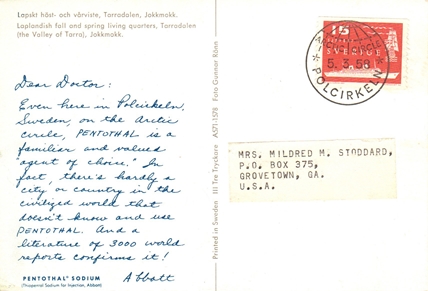 Lapskt höst- och vårviste, Tarrodalen, Jokkmokk.
Laplandish fall and spring living quarters, Tarrodalen
(the Valley of Tarra), Jokkmokk.
Dear Doctor:
Even here in Polcirkeln,
Sweden, on the Arctic
circle, PENTOTHAL is a
familiar and valued
"agent of choice." In
fact, there's hardly a
city or country in the
civilized world that
doesn't know and use
PENTOTHAL. And a
literature of 3000 world
reports confirms it!
Abbott
PENTOTHAL® SODIUM
(Thiopental Sodium for Injection, Abbott)
Printed in Sweden III Tre Tryckare A571/1578 Foto Gunnar Rönn
15
SVERIGE
ARCTIC CIRCLE
5.3.58
POLCIRKELN
MRS. MILDRED M. STODDARD,
P.O. BOX 375,
GROVETOWN, GA.
U.S.A.